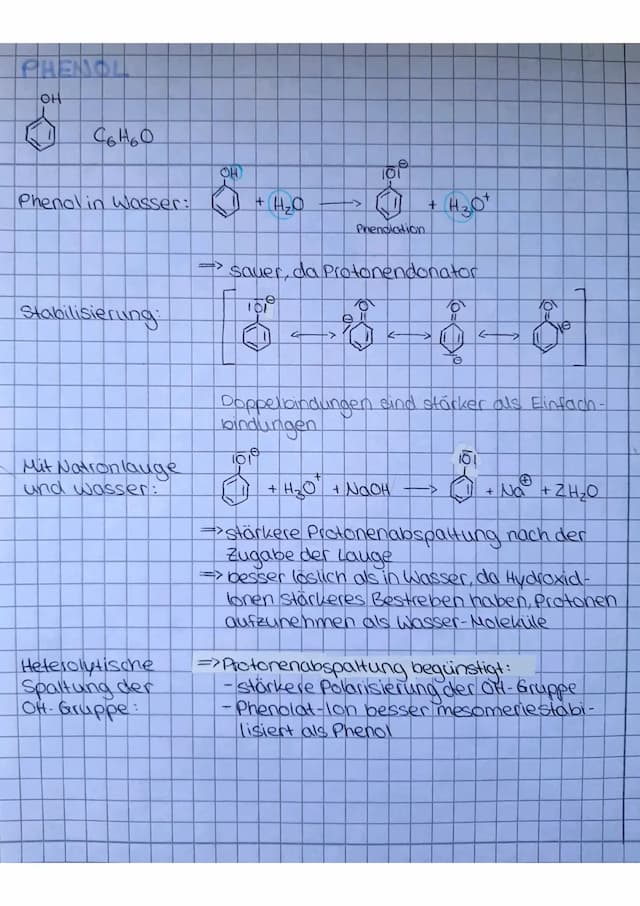 PHENOL
OH
C6H6O
Phenol in Wasser: OH + H2O → |O̅|⊖ + H3O+
Phenolation
=> sauer, da Protonendonator
Stabilisierung: [ |O̅|⊖ ↔ |O| ⊖ ↔ |O| ⊖ ↔ |O| |⊖ ]
Doppelbindungen sind stärker als Einfach-
bindungen
Mit Natronlauge
und Wasser: |O̅|⊖ + H3O+ + NaOH → |O̅| + Na⊕ + 2H2O
=> stärkere Protonenabspaltung nach der
Zugabe der Lauge
=> besser löslich als in Wasser, da Hydroxid-
Ionen stärkeres Bestreben haben, Protonen
aufzunehmen als Wasser-Moleküle
Heterolytische
Spaltung der
OH-Gruppe:
=> Protonenabspaltung begünstigt:
- stärkere Polarisierung der OH-Gruppe
- Phenolat-Ion besser mesomeriestabi-
lisiert als Phenol